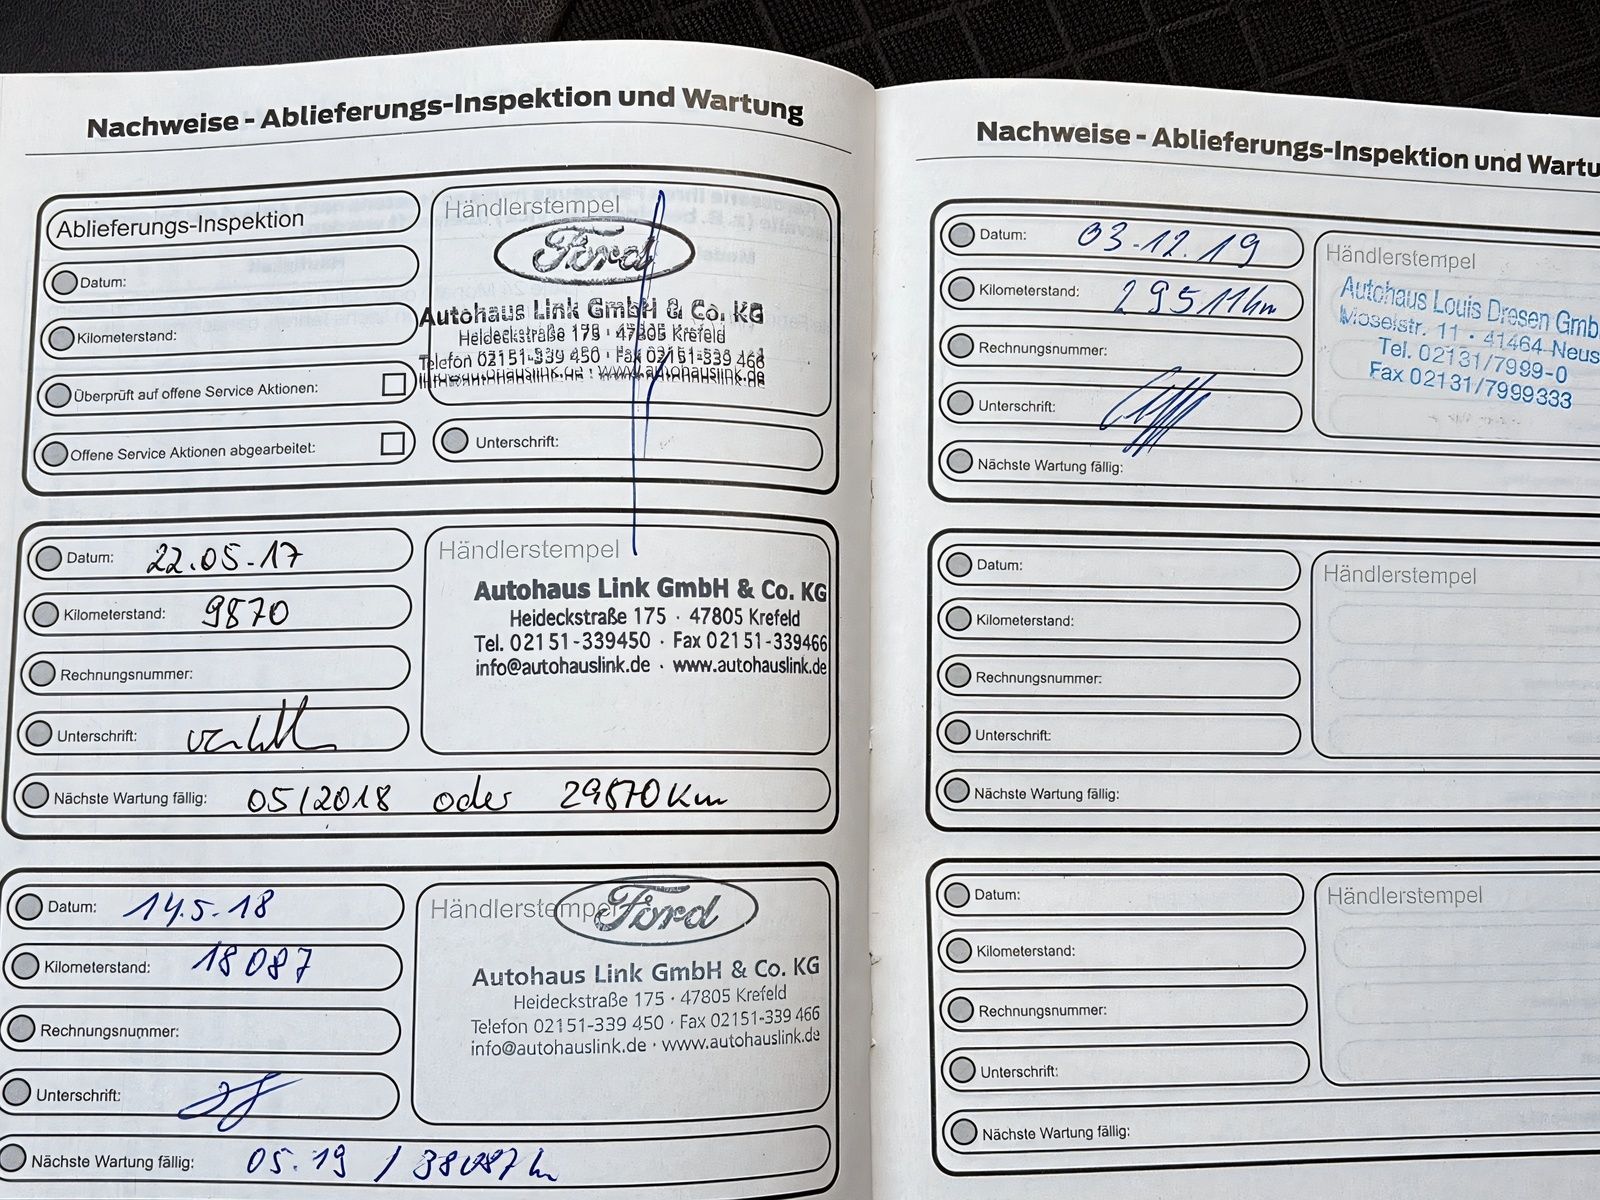 Nachweise - Ablieferungs-Inspektion und Wartung
Ablieferungs-Inspektion
Datum:
Kilometerstand:
Überprüft auf offene Service Aktionen:
Offene Service Aktionen abgearbeitet:
Händlerstempel
Ford
Autohaus Link GmbH & Co. KG
Heideckstraße 175 · 47805 Krefeld
Telefon 02151-339 450 · Fax 02151-339 466
info@autohauslink.de · www.autohauslink.de
Unterschrift:
Datum: 22.05.17
Kilometerstand: 9870
Rechnungsnummer:
Unterschrift:
Nächste Wartung fällig: 05/2018 oder 29870 Km
Händlerstempel
Autohaus Link GmbH & Co. KG
Heideckstraße 175 · 47805 Krefeld
Tel. 02151-339450 · Fax 02151-339466
info@autohauslink.de · www.autohauslink.de
Datum: 14.5.18
Kilometerstand: 18087
Rechnungsnummer:
Unterschrift:
Nächste Wartung fällig: 05.19 / 38087 km
Händlerstempel
Ford
Autohaus Link GmbH & Co. KG
Heideckstraße 175 · 47805 Krefeld
Telefon 02151-339 450 · Fax 02151-339 466
info@autohauslink.de · www.autohauslink.de
Nachweise - Ablieferungs-Inspektion und Wartu
Datum: 03.12.19
Kilometerstand: 29511 km
Rechnungsnummer:
Unterschrift:
Nächste Wartung fällig:
Händlerstempel
Autohaus Louis Dresen Gmb
Moselstr. 11 · 41464 Neus
Tel. 02131/7999-0
Fax 02131/7999333
Datum:
Kilometerstand:
Rechnungsnummer:
Unterschrift:
Nächste Wartung fällig:
Händlerstempel
Datum:
Kilometerstand:
Rechnungsnummer:
Unterschrift:
Nächste Wartung fällig:
Händlerstempel